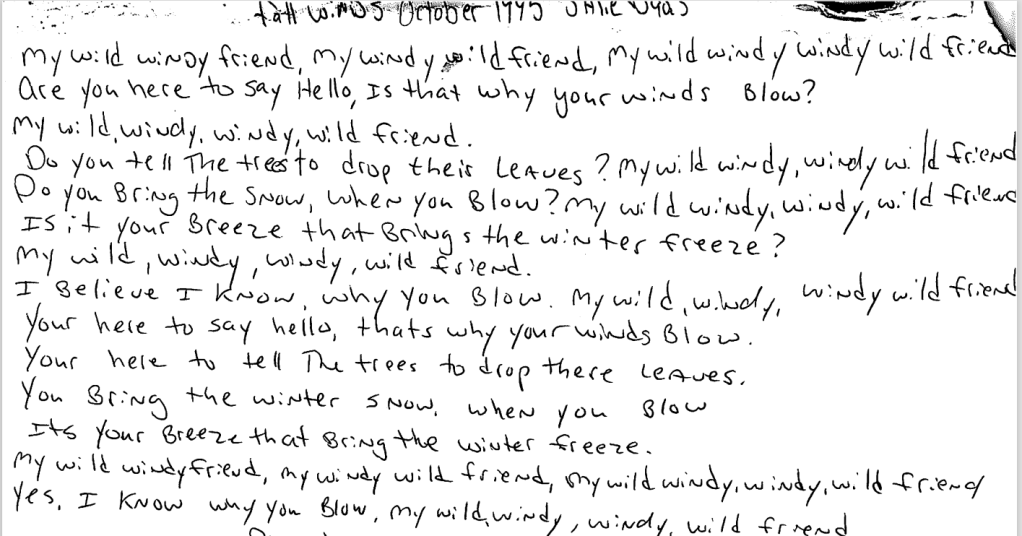 Fall Winds October 1995
My wild windy friend, My windy wild friend, My wild windy windy wild friend
Are you here to say Hello, Is that why your winds Blow?
My wild, windy, windy, wild friend.
Do you tell The trees to drop their Leaves? My wild windy, windy wild friend
Do you Bring the snow, when you Blow? My wild windy, windy, wild friend
Is it your Breeze that Brings the winter freeze?
My wild, windy, windy, wild friend.
I Believe I Know, why you Blow. My wild, windy, windy wild friend
Your here to say hello, thats why your winds Blow.
Your here to tell The trees to drop there Leaves.
You Bring the winter snow, when you Blow
Its your Breeze that Bring the winter freeze.
My wild windy friend, my windy wild friend, my wild windy, windy, wild friend
Yes, I Know why you Blow, my wild, windy, windy, wild friend